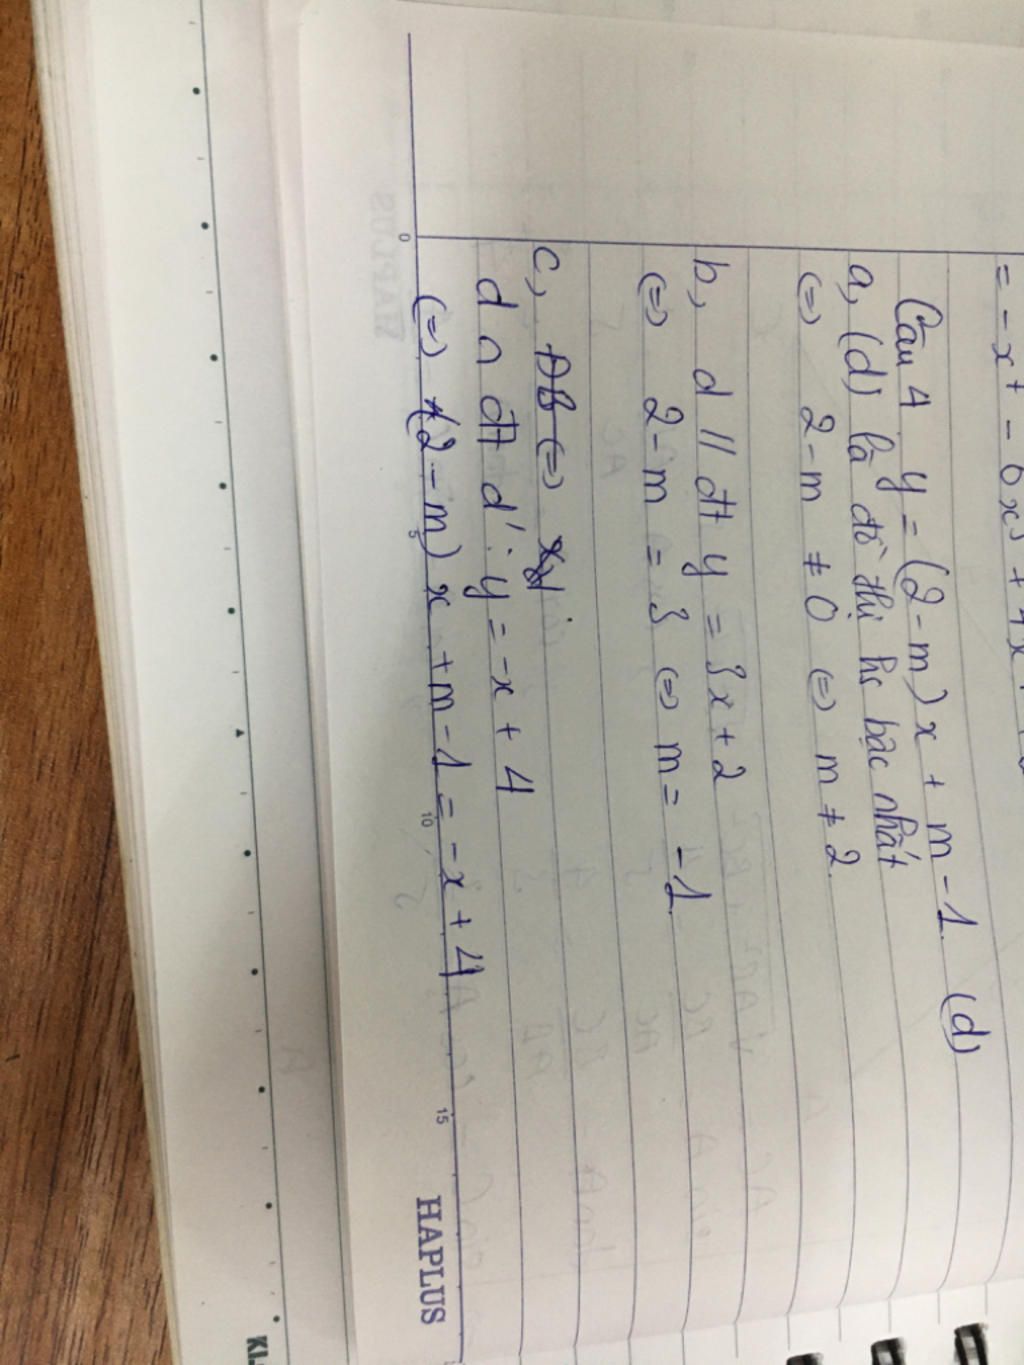 = -x⁴ - 6x³ + 4x
Câu 4 y = (2-m)x + m-1 (d)
a, (d) là đồ thị hs bậc nhất
(=) 2-m ≠ 0 (=) m ≠ 2.
b, d // đt y = 3x+2
(=) 2-m = 3 (=) m = -1
c, AB (=) xy
d ∩ đt d': y = -x + 4
(=) (2-m)x + m-1 = -x + 4
0 5 10 15 HAPLUS